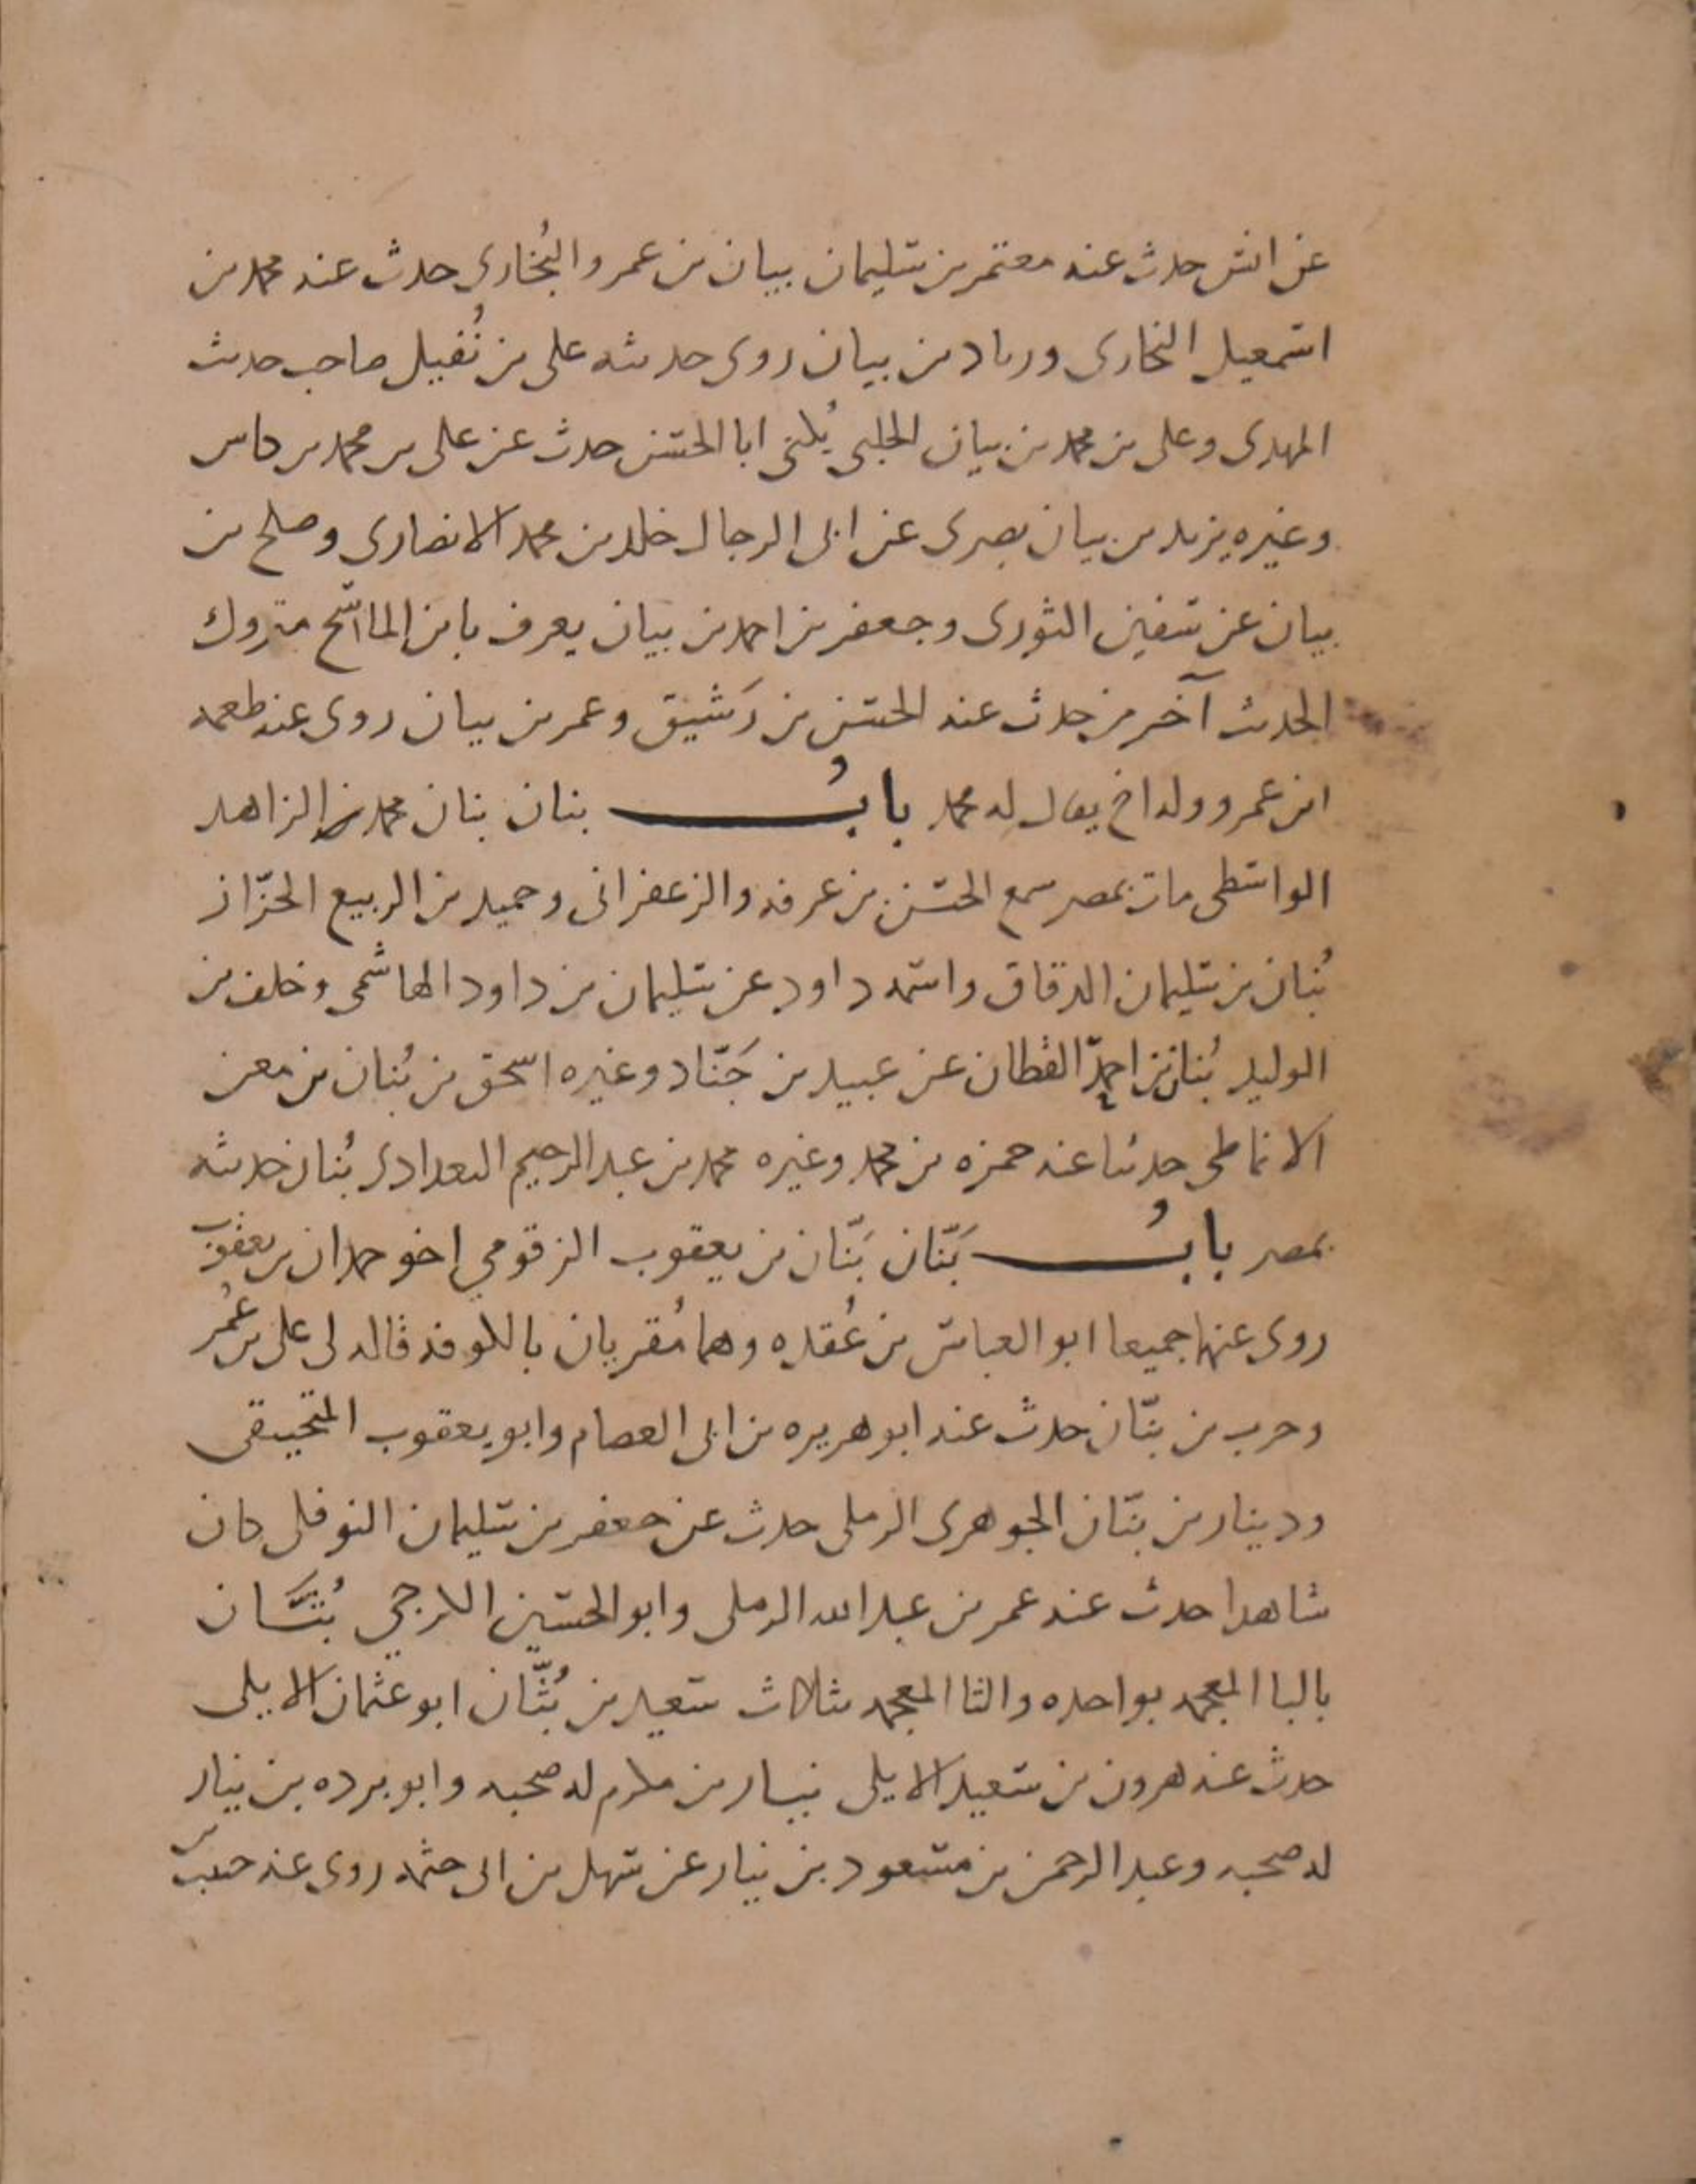 عن انس حدث عنه معتمر بن سليمان بيان بن عمرو البُخارى حدث عنه محمد بن
اسمعيل البخارى وزياد بن بيان روى حديثه على بن نُفيل صاحب حديث
المهدى وعلى بن محمد بن بيان الحلبى يُكنى ابا الحسن حدث عن على بن محمد بن كاس
وغيره يزيد بن بيان بصرى عن ابى الرجال خلد بن محمد الانصارى وصلح بن
بيان عن سفين الثورى وجعفر بن احمد بن بيان يعرف بابن الماسح متروك
الحديث آخر من حدث عنه الحسن بن رَشيق وعمر بن بيان روى عنه طعمه
ابن عمرو وله اخ يقال له محمد بابُ بنان بنان بن محمد الزاهد
الواسطى مات بمصر سمع الحسن بن عرفه والزعفرانى وحميد بن الربيع الخزّاز
بُنان بن سليمان الدقاق واسمه داود عن سليمان بن داود الهاشمى وخلف بن
الوليد بُنان بن احمد القطان عن عبيد بن جَنّاد وغيره اسحق بن بُنان بن معن
الانماطى حدثنا عنه حمزه بن محمد وغيره محمد بن عبد الرحيم البغدادى بُنان حديثه
بمصر بابُ بَنّان بَنّان بن يعقوب الزقومي اخو حمدان بن يعقوب
روى عنهما جميعا ابو العباس بن عُقده وهما مُقريان بالكوفه قاله لى على بن عُمر
وحرب بن بنّان حدث عنه ابو هريره بن ابى العصام وابو يعقوب المنجنيقى
ودينار بن بنّان الجوهرى الرملى حدث عن جعفر بن سليمان النوفلى كان
شاهدا حدث عنه عمر بن عبد الله الرملى وابو الحسين الكرجي بُثَّان
بالبا المعجمه بواحده والثا المعجمه بثلاث سعيد بن بُثّان ابو عثمان الايلى
حدث عنه هرون بن سعيد الايلى نيار بن مكرم له صحبه وابو برده بن نيار
له صحبه وعبد الرحمن بن مسعود بن نيار عن سهل بن ابى حثمه روى عنه خبيب بن